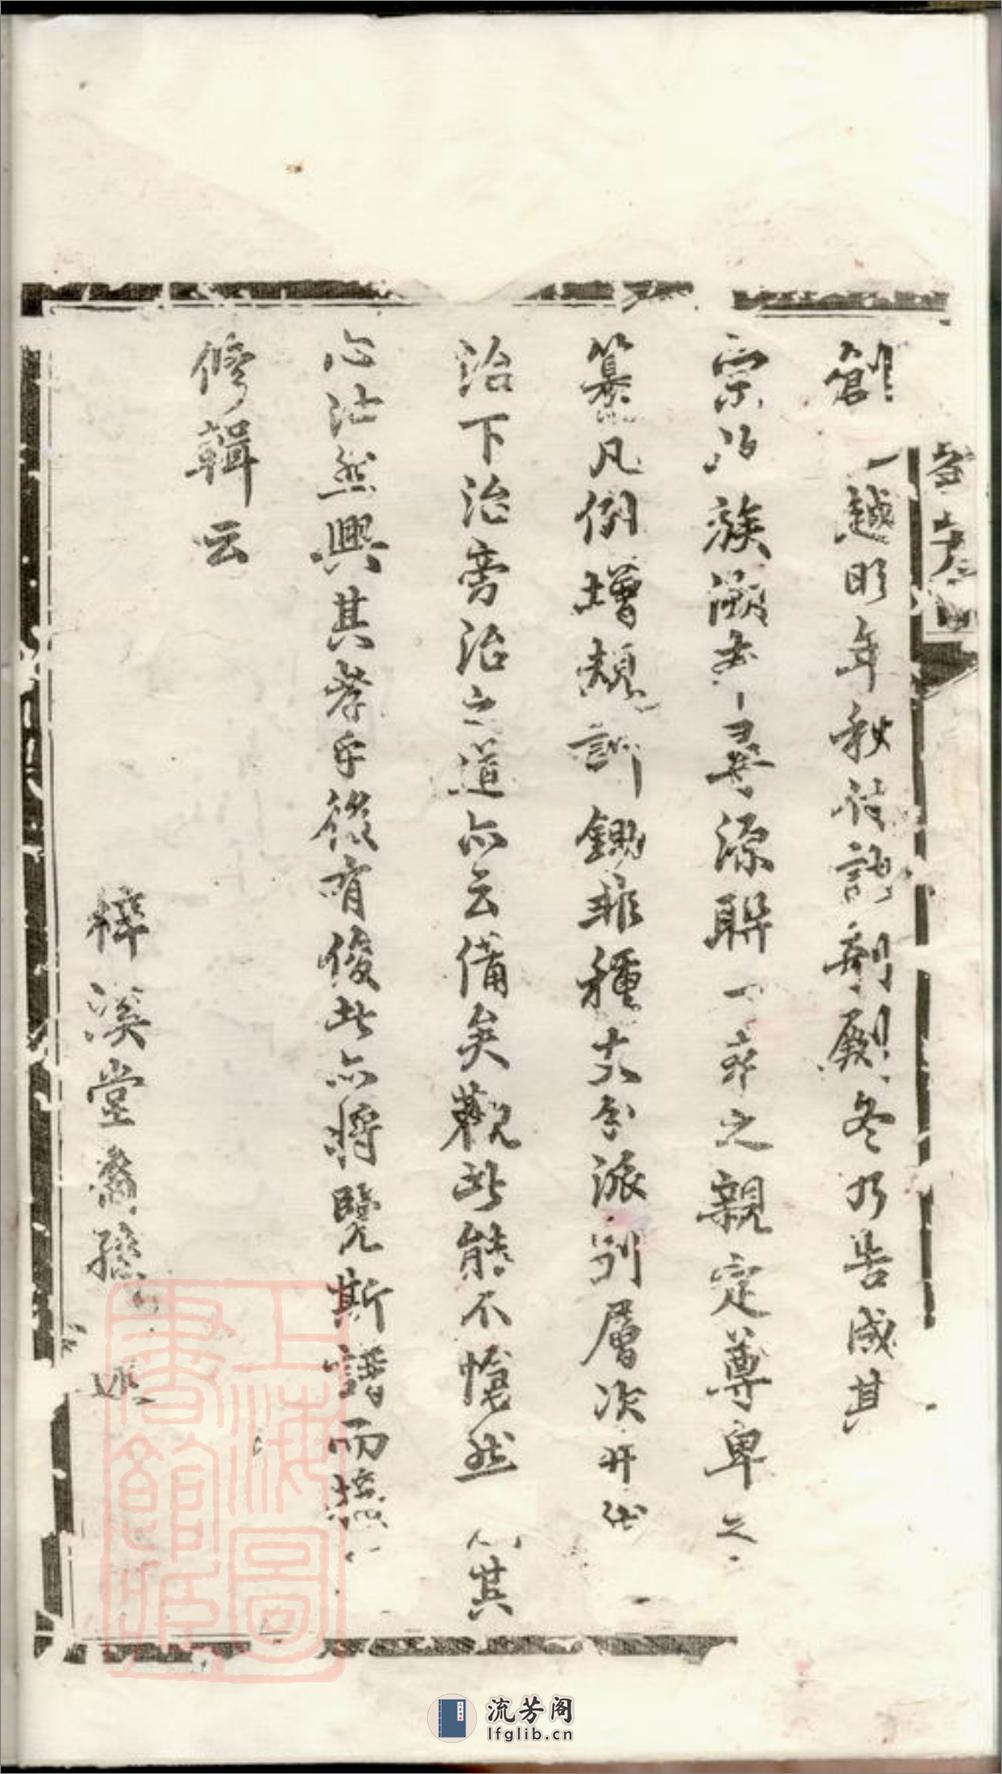 創 越明年秋付諸剞劂冬乃告成其
宗以族溯本尋源聯一本之親定尊卑之
纂凡例增規訓鋤非種支分派別層次井
治下治旁治之道亦云備矣觀此能不愾然 其
心沾然興其孝乎後有俊此亦將覽斯譜而
修輯云
梓溪堂裔孫
上海圖書館藏
流芳阁
lfglib.cn